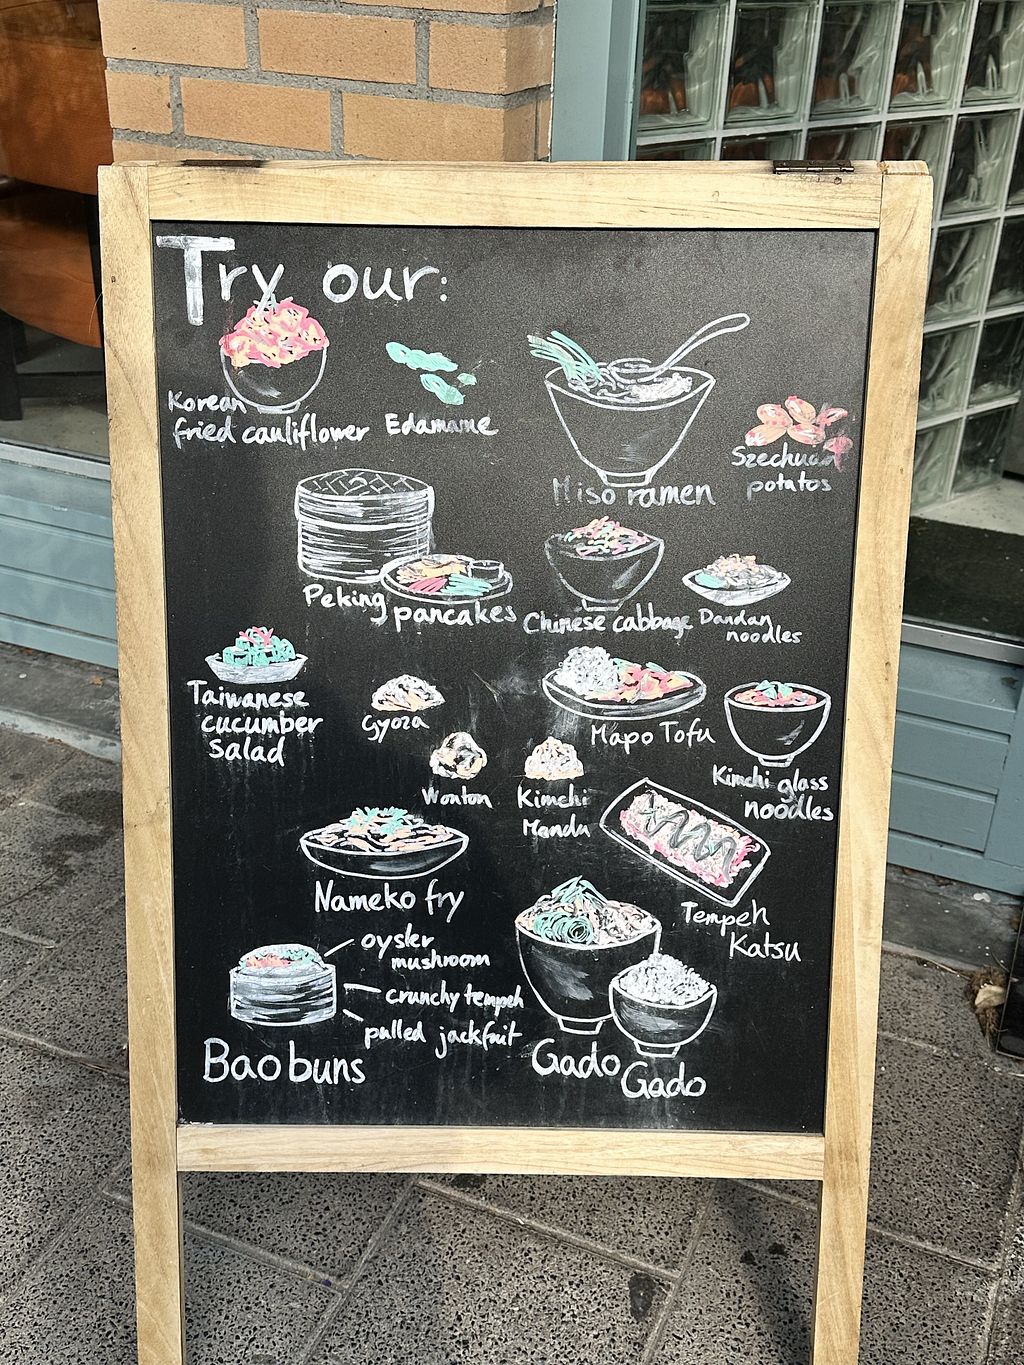 Try our:
Korean
fried cauliflower
Edamame
Miso ramen
Szechuan
potatos
Peking pancakes
Chinese cabbage
Dandan
noodles
Taiwanese
cucumber
salad
Gyoza
Mapo Tofu
Kimchi glass
noodles
Wonton
Kimchi
Mandu
Nameko fry
Tempeh
Katsu
oyster
mushroom
crunchy tempeh
pulled jackfruit
Bao buns
Gado
Gado